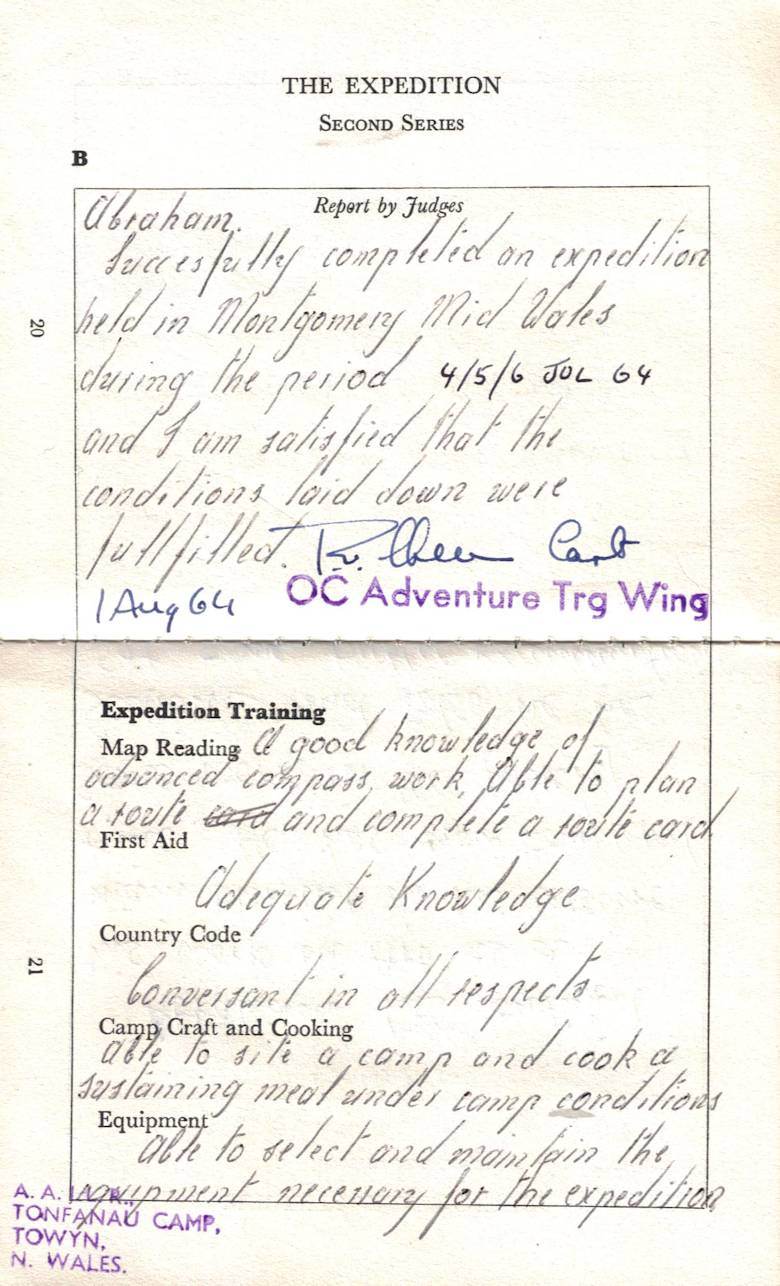 THE EXPEDITION
SECOND SERIES
B
Report by Judges
Abraham.
Succesfully completed an expedition
held in Montgomery Mid Wales
during the period 4/5/6 JUL 64
and I am satisfied that the
conditions laid down were
fullfilled.
OC Adventure Trg Wing
1 Aug 64
20
Expedition Training
Map Reading A good knowledge of
advanced compass work, Able to plan
a route card and complete a route card
First Aid
Adequate Knowledge
Country Code
Conversant in all respects
Camp Craft and Cooking
Able to site a camp and cook a
sustaining meal under camp conditions
Equipment
Able to select and maintain the
equipment necessary for the expedition
21
A. A.
TONFANAU CAMP,
TOWYN,
N. WALES.